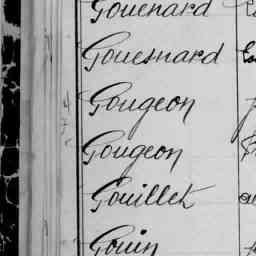 Gouenard
Gouesnard
Gougeon
Gougeon
Gouillet
Gouin